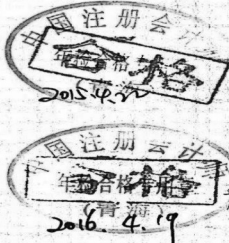 中国注册会计
合格
2015.4.22
中国注册会计师
合格
年检合格专用章
(青海)
2016.4.19